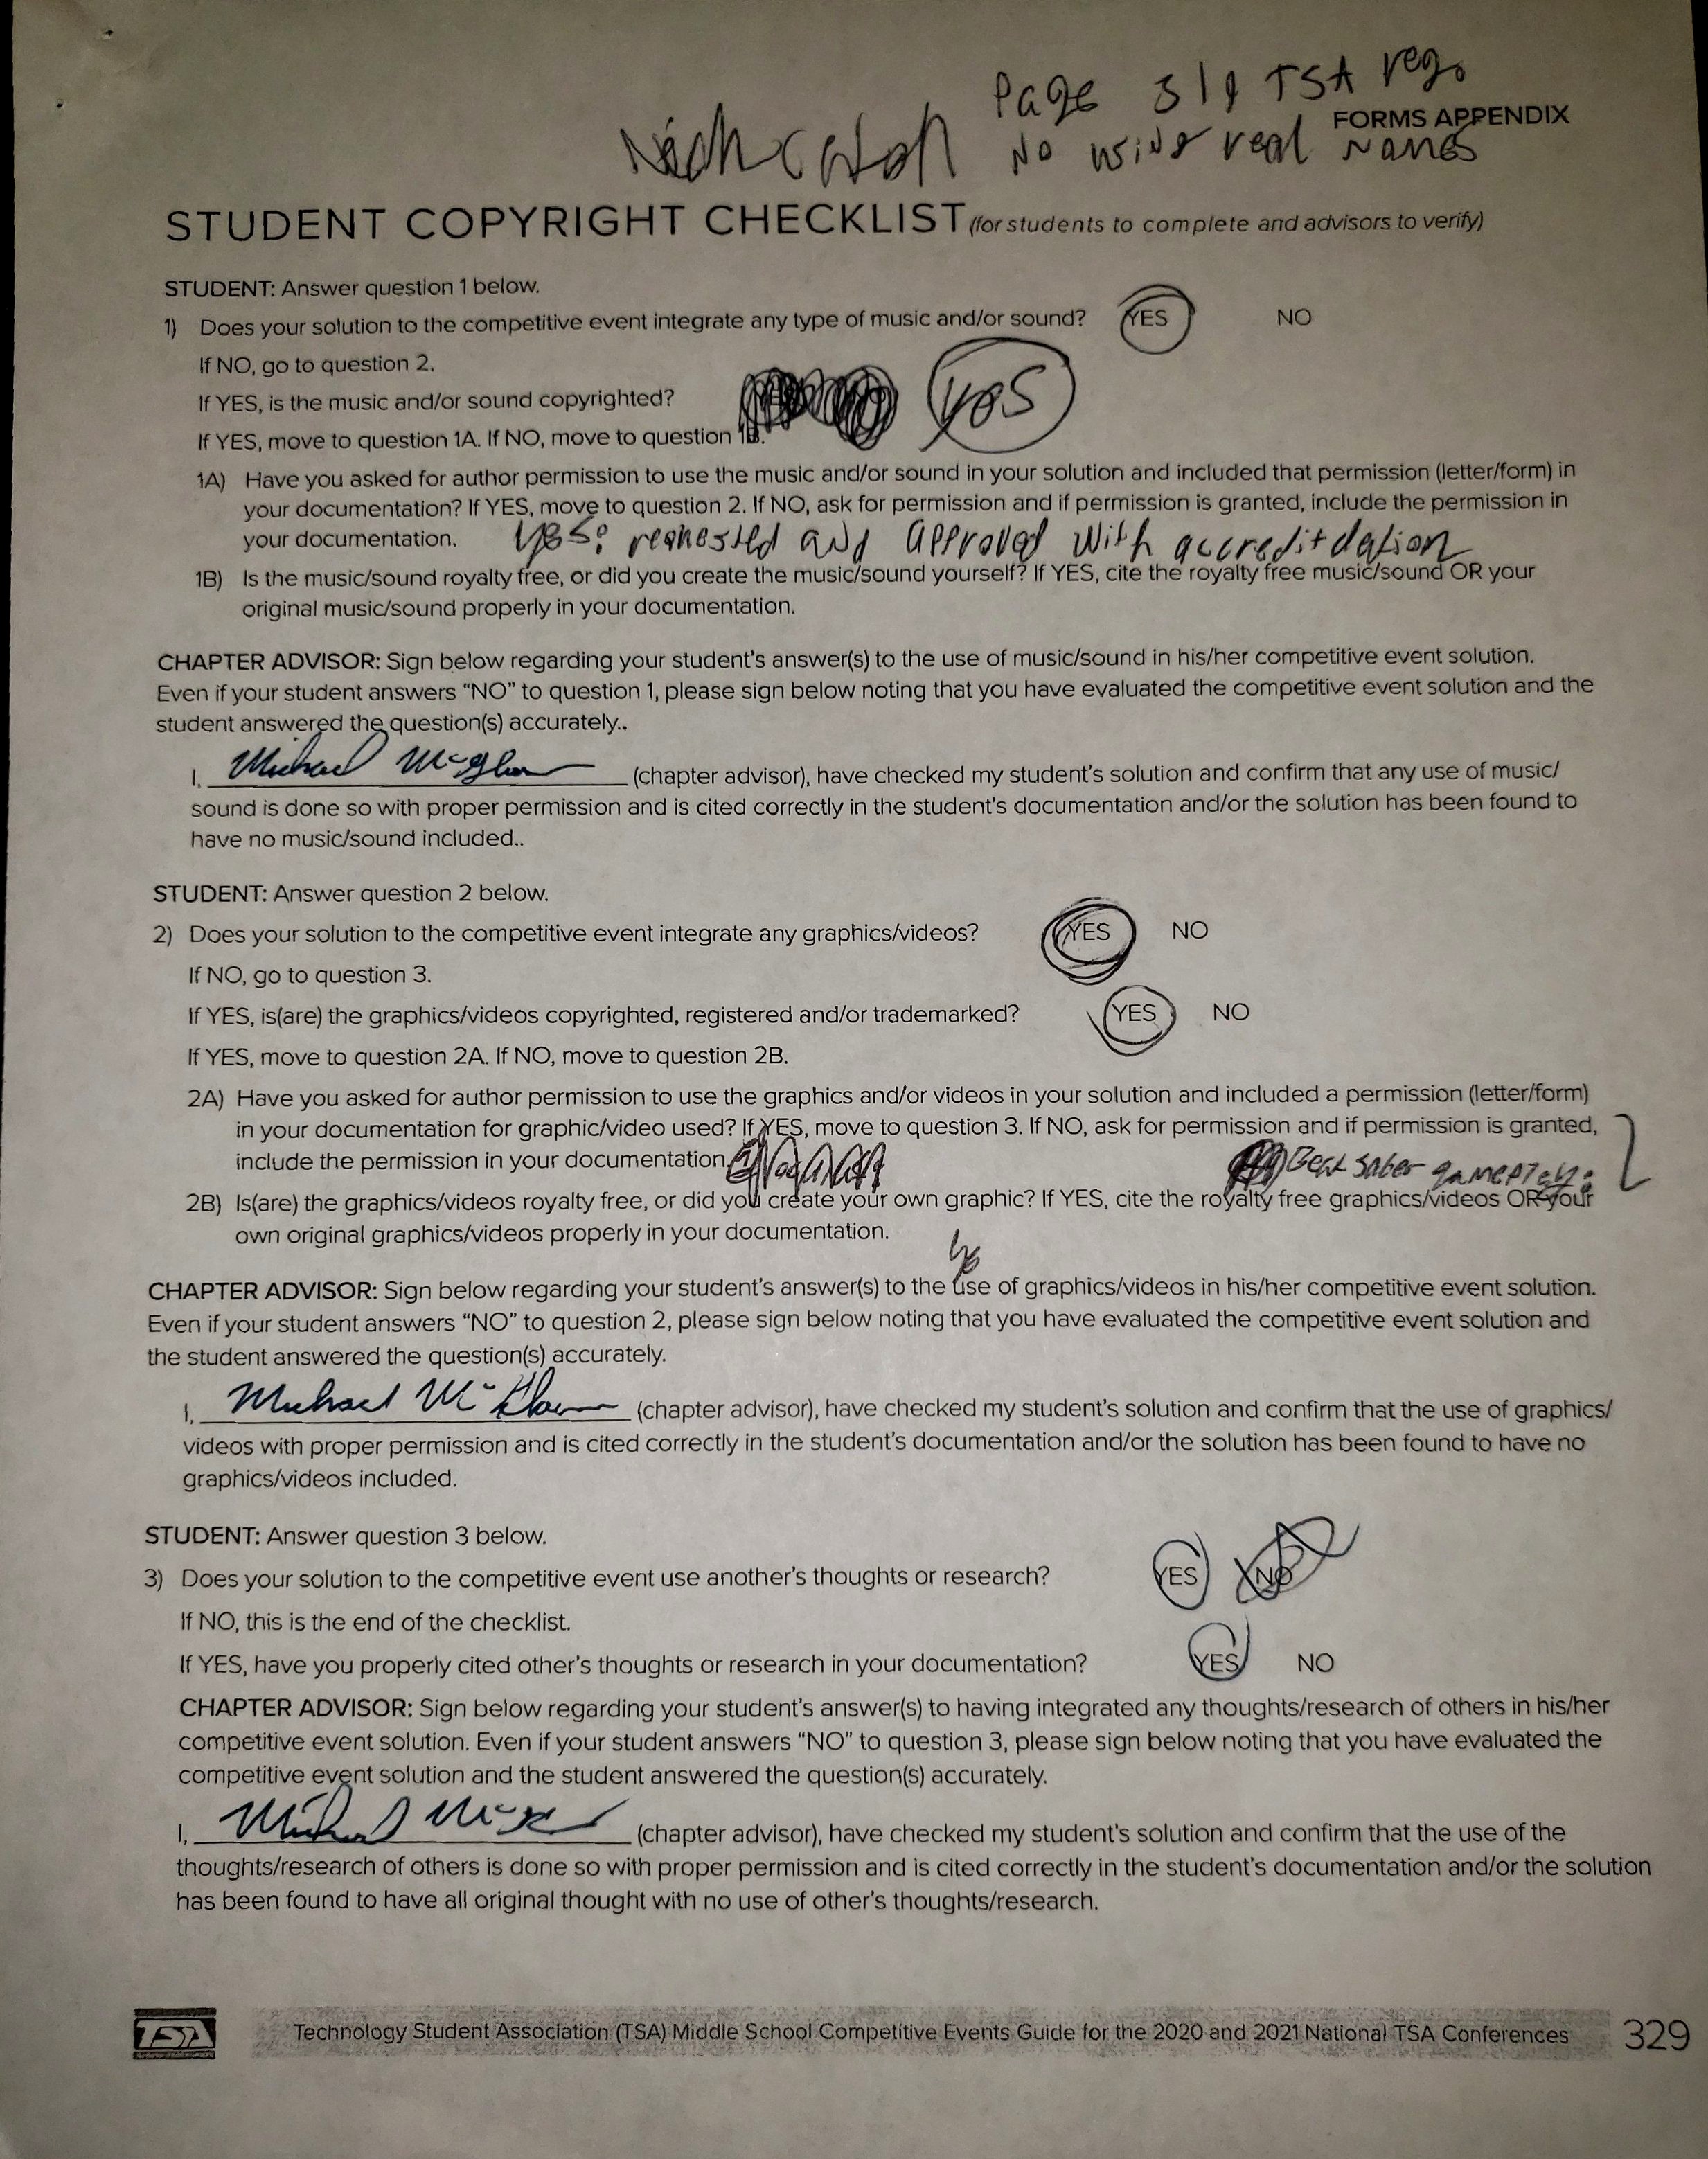 Page 319 TSA reg.
FORMS APPENDIX
No using real Names
STUDENT COPYRIGHT CHECKLIST (for students to complete and advisors to verify)
STUDENT: Answer question 1 below.
1) Does your solution to the competitive event integrate any type of music and/or sound? YES NO
If NO, go to question 2.
If YES, is the music and/or sound copyrighted? yes
If YES, move to question 1A. If NO, move to question 1B.
1A) Have you asked for author permission to use the music and/or sound in your solution and included that permission (letter/form) in
your documentation? If YES, move to question 2. If NO, ask for permission and if permission is granted, include the permission in
your documentation. Yes: requested and approved with accreditdation
1B) Is the music/sound royalty free, or did you create the music/sound yourself? If YES, cite the royalty free music/sound OR your
original music/sound properly in your documentation.
CHAPTER ADVISOR: Sign below regarding your student's answer(s) to the use of music/sound in his/her competitive event solution.
Even if your student answers "NO" to question 1, please sign below noting that you have evaluated the competitive event solution and the
student answered the question(s) accurately..
I, Michael (chapter advisor), have checked my student's solution and confirm that any use of music/
sound is done so with proper permission and is cited correctly in the student's documentation and/or the solution has been found to
have no music/sound included..
STUDENT: Answer question 2 below.
2) Does your solution to the competitive event integrate any graphics/videos? YES NO
If NO, go to question 3.
If YES, is(are) the graphics/videos copyrighted, registered and/or trademarked? YES NO
If YES, move to question 2A. If NO, move to question 2B.
2A) Have you asked for author permission to use the graphics and/or videos in your solution and included a permission (letter/form)
in your documentation for graphic/video used? If YES, move to question 3. If NO, ask for permission and if permission is granted,
include the permission in your documentation. Beat saber gameplay:
2B) Is(are) the graphics/videos royalty free, or did you create your own graphic? If YES, cite the royalty free graphics/videos OR your
own original graphics/videos properly in your documentation.
CHAPTER ADVISOR: Sign below regarding your student's answer(s) to the use of graphics/videos in his/her competitive event solution.
Even if your student answers "NO" to question 2, please sign below noting that you have evaluated the competitive event solution and
the student answered the question(s) accurately.
I, Michael (chapter advisor), have checked my student's solution and confirm that the use of graphics/
videos with proper permission and is cited correctly in the student's documentation and/or the solution has been found to have no
graphics/videos included.
STUDENT: Answer question 3 below.
3) Does your solution to the competitive event use another's thoughts or research? YES NO
If NO, this is the end of the checklist.
If YES, have you properly cited other's thoughts or research in your documentation? YES NO
CHAPTER ADVISOR: Sign below regarding your student's answer(s) to having integrated any thoughts/research of others in his/her
competitive event solution. Even if your student answers "NO" to question 3, please sign below noting that you have evaluated the
competitive event solution and the student answered the question(s) accurately.
I, Michael (chapter advisor), have checked my student's solution and confirm that the use of the
thoughts/research of others is done so with proper permission and is cited correctly in the student's documentation and/or the solution
has been found to have all original thought with no use of other's thoughts/research.
TSA Technology Student Association (TSA) Middle School Competitive Events Guide for the 2020 and 2021 National TSA Conferences 329